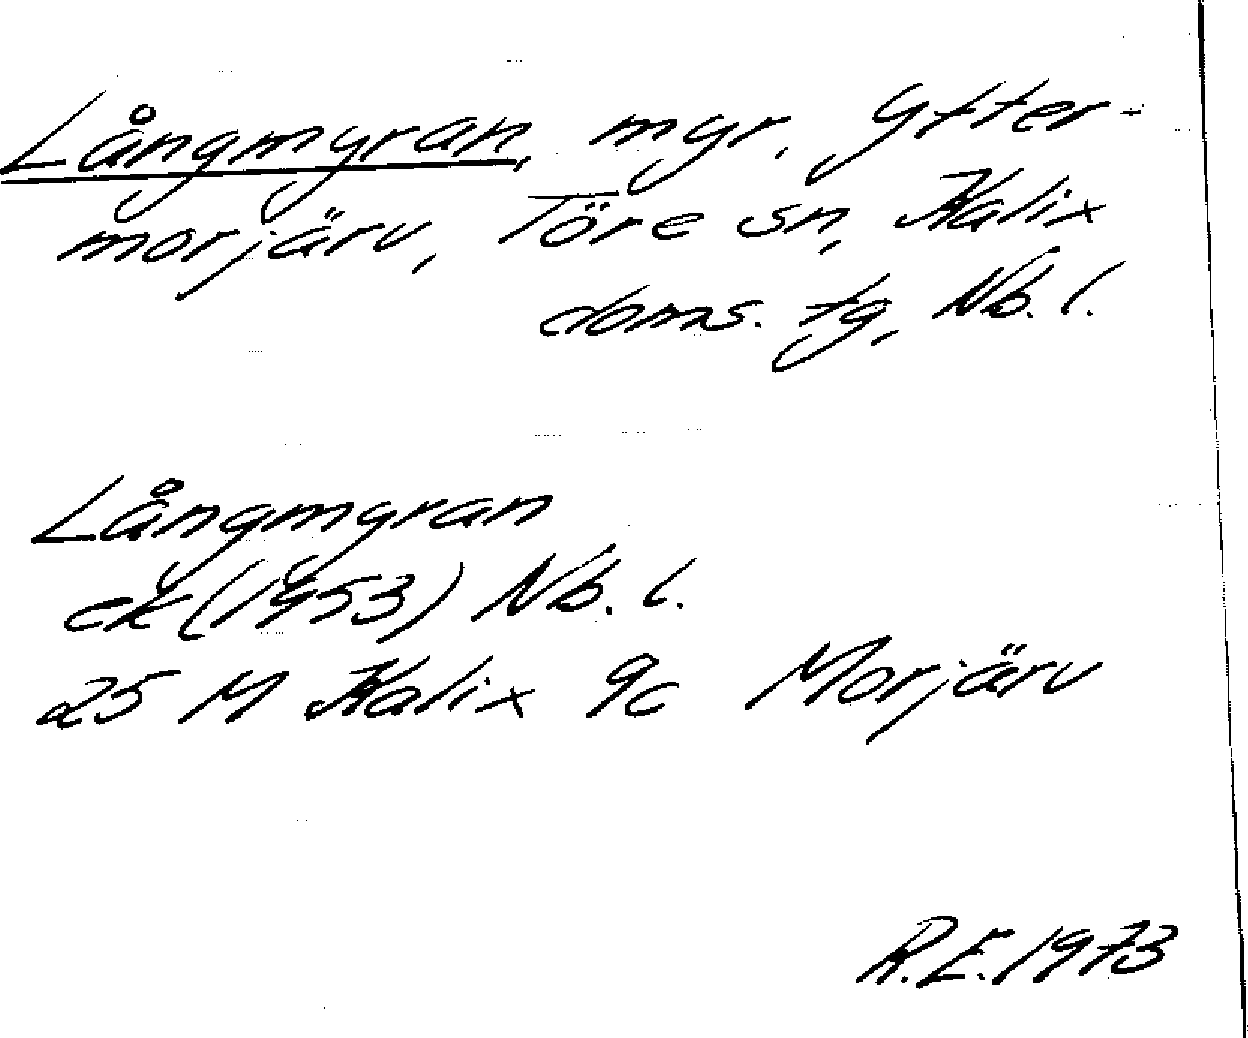 Långmyran, myr, Ytter-
morjärv, Töre sn, Kalix
doms. tg, Nb. l.
Långmyran
ek (1953) Nb. l.
25 M Kalix 9c Morjärv
R.E. 1973